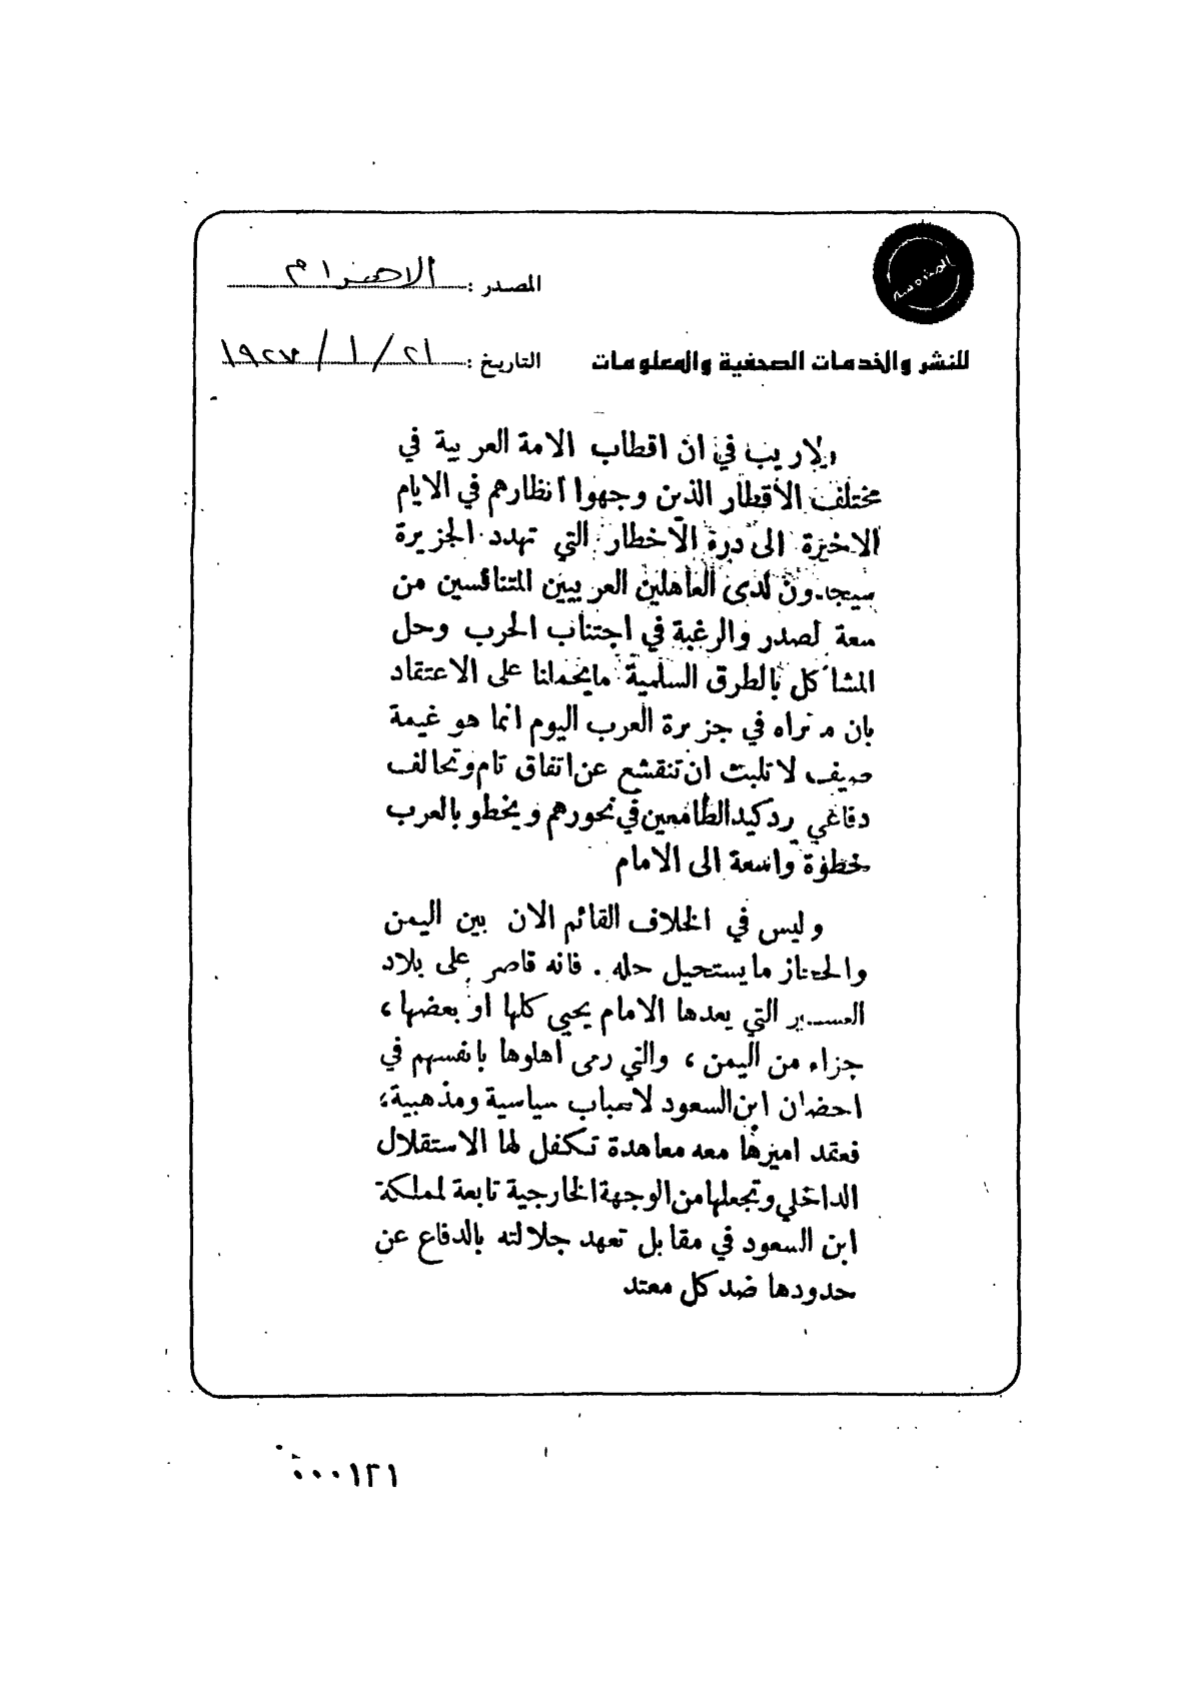 المصدر : الاهرام
للنشر والخدمات الصحفية والمعلومات
التاريخ : ٢١ / ١ / ١٩٢٧
ولاريب في ان اقطاب الامة العربية في
مختلف الأقطار الذين وجهوا انظارهم في الايام
الاخيرة الى درة الاخطار التي تهدد الجزيرة
سيجدون لدى العاهلين العربيين المتنافسين من
سعة لصدر والرغبة في اجتناب الحرب وحل
المشاكل بالطرق السلمية مايحملنا على الاعتقاد
بان م نراه في جزيرة العرب اليوم انما هو غيمة
صيف لا تلبث ان تنقشع عن اتفاق تام وتحالف
دفاعي يرد كيد الطامعين في نحورهم ويخطو بالعرب
خطوة واسعة الى الامام
وليس في الخلاف القائم الان بين اليمن
والحجاز ما يستحيل حله . فانه قاصر على بلاد
العسير التي يعدها الامام يحيي كلها او بعضها ،
جزاء من اليمن ، والتي رمى اهلوها بانفسهم في
احضان ابن السعود لاسباب سياسية ومذهبية،
فعقد اميرها معه معاهدة تكفل لها الاستقلال
الداخلي وتجعلها من الوجهة الخارجية تابعة لمملكة
ابن السعود في مقابل تعهد جلالته بالدفاع عن
حدودها ضد كل معتد
٠٠٠١٢١